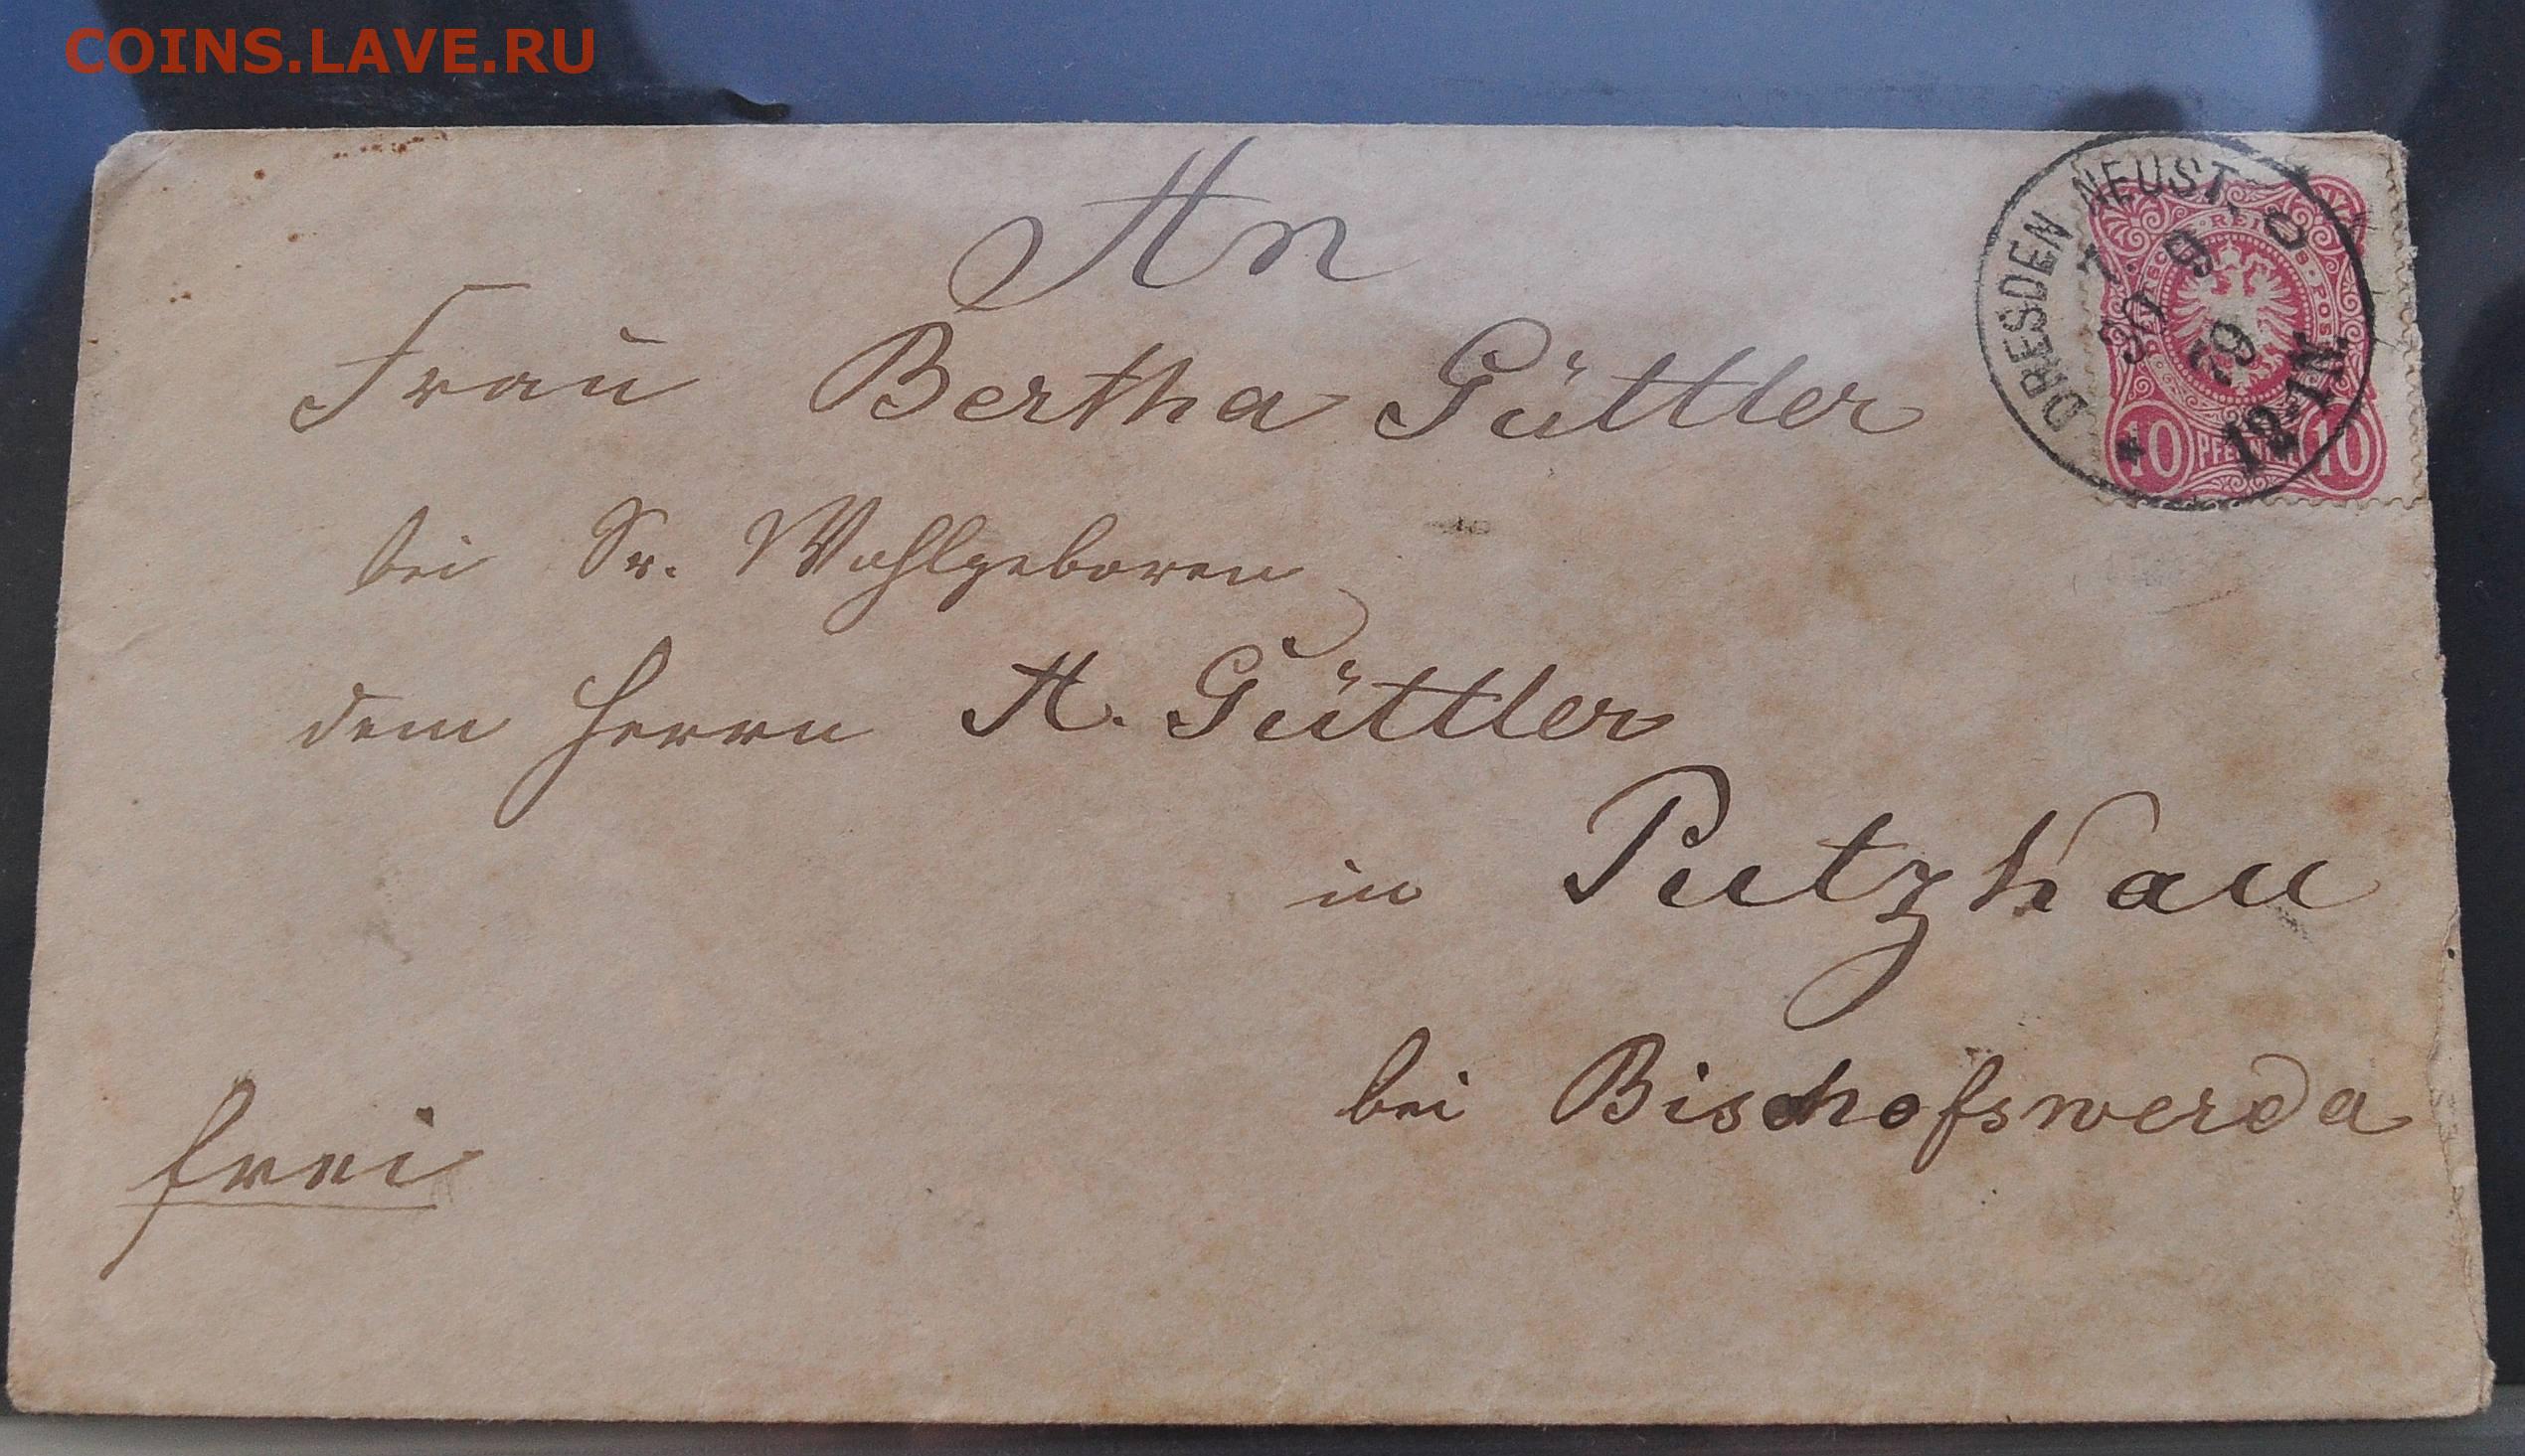 COINS.LAVE.RU
An
Frau Bertha Güttler
bei Sr. Wohlgeboren
dem Herrn A. Güttler
in Putzkau
bei Bischofswerda
frei
DRESDEN NEUST.
30 9
79
12-1N.
REICHS-POST
10 PFENNIG 10